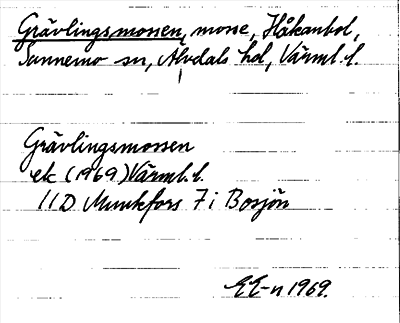 Grävlingsmossen, mosse, Håkanbol,
Sunnemo sn, Älvdals hd, Värml. l.
Grävlingsmossen
ek (1969) Värml. l.
11D Munkfors 7i Bosjön
EE-n 1969.